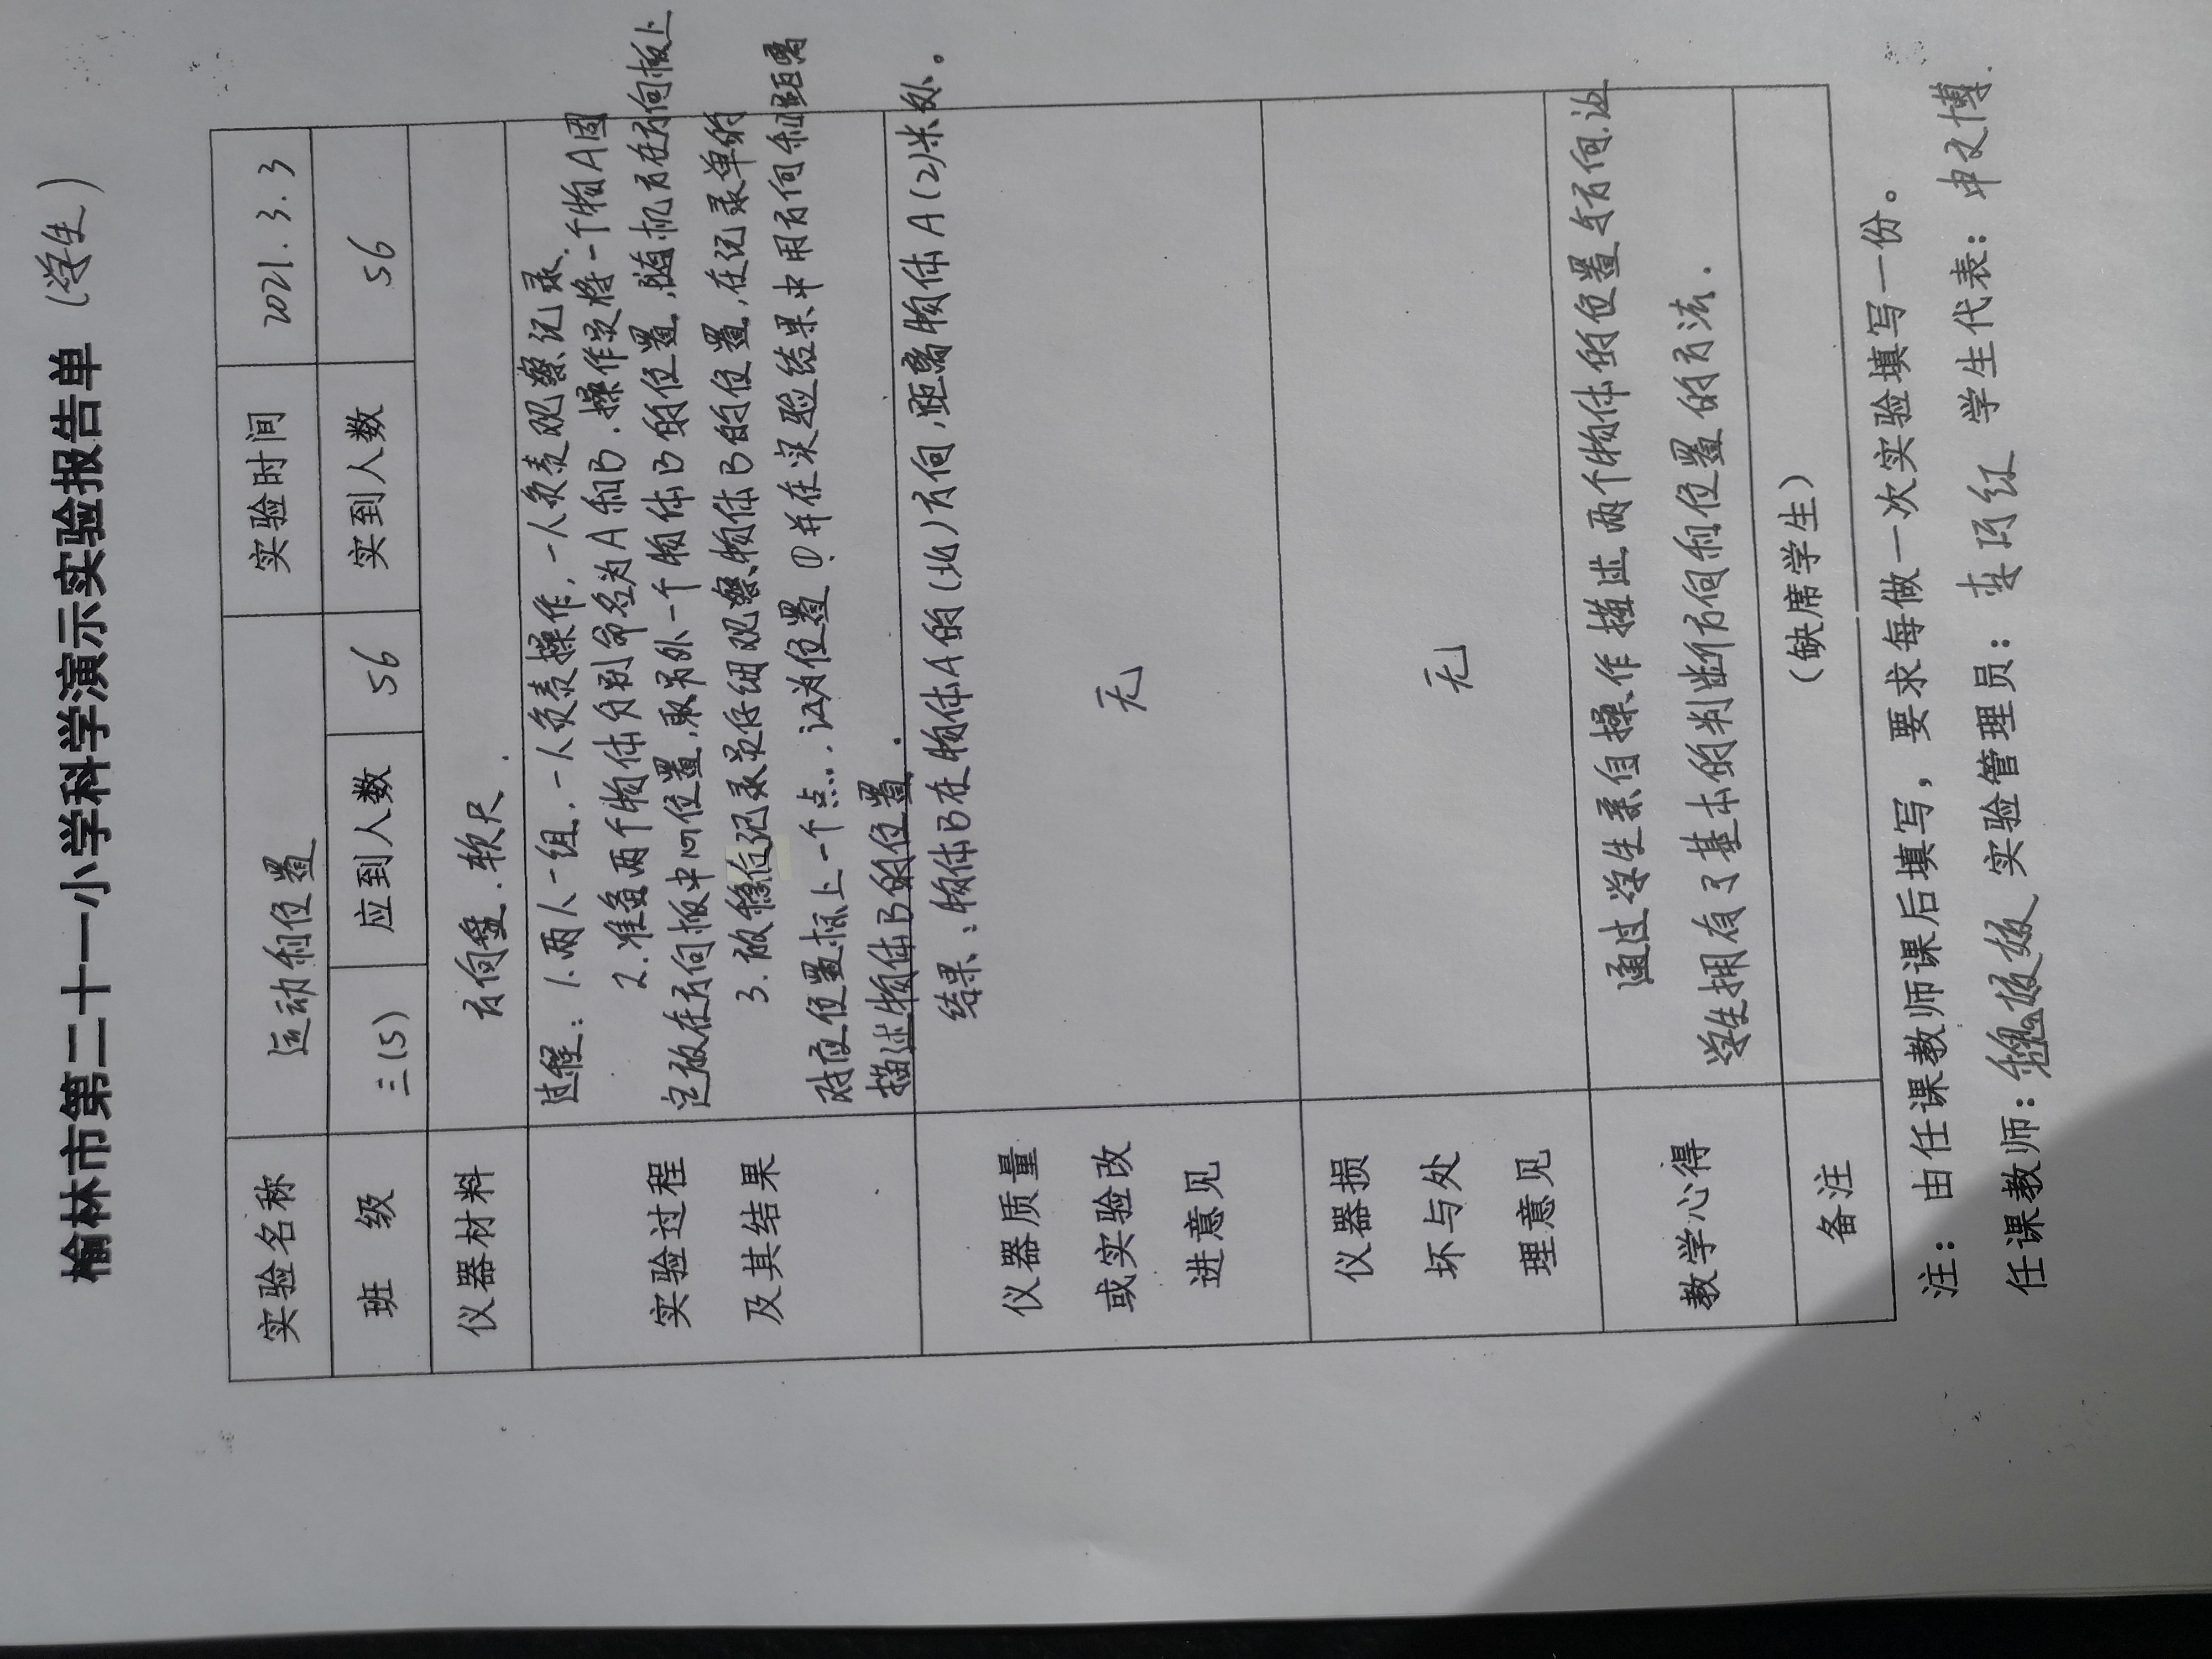 榆林市第二十一小学科学演示实验报告单 (学生)
实验名称 运动和位置 实验时间 2021.3.3
班 级 三(5) 应到人数 56 实到人数 56
仪器材料 方向盘.软尺.
实验过程
及其结果
过程:1.两人一组,一人负责操作,一人负责观察记录.
2.准备两个物体分别命名为A和B.操作员将一个物A固
定放在方向板中心位置,取另外一个物体B的位置,随机方在方向板上
3.放稳后记录员仔细观察物体B的位置,在记录单的
对应位置标上一个点.记为位置①并在实验结果中用方向和距离
描述物体B的位置.
结果:物体B在物体A的(北)方向,距离物体A(2)米处。
仪器质量
或实验改
进意见
无
仪器损
坏与处
理意见
无
教学心得
通过学生亲自操作描述两个物体的位置与方向.让
学生拥有了基本的判断方向和位置的方法.
备注 (缺席学生)
注:由任课教师课后填写,要求每做一次实验填写一份。
任课教师: 实验管理员: 学生代表:申文博.